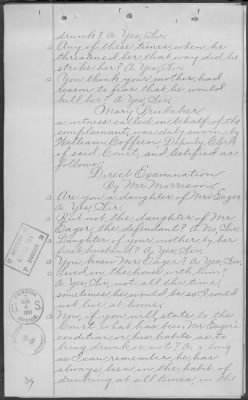 drunk? A Yes, Sir.
Q Any of these times when he
threatened her that way did he
strike her? A Yes, Sir.
Q You think your mother had
reason to fear that he would
kill her? A Yes, Sir.
Mary
a witness called on behalf of the
complainant, was duly sworn by
William Coffin Deputy Clerk
of said Court, and testified as
follows:
Direct Examination
By Mr Morrison.
Q Are you a daughter of Mrs Eager
A Yes, Sir.
Q But not the daughter of Mr
Eager, the defendant? A No, Sir.
Q Daughter of your mother by her
first husband? A Yes, Sir.
Q You know Mr Eager? A Yes, Sir.
Q Lived in the house with him?
A Yes, Sir, not all the time,
sometimes he would be so I would
not be at home.
Q Now, if you will state to the
Court what has been Mr Eager's
condition or his habits as to
being drunk or not? A as long
as I can remember he has
always been in the habit of
drinking at all times, in the
39
U S